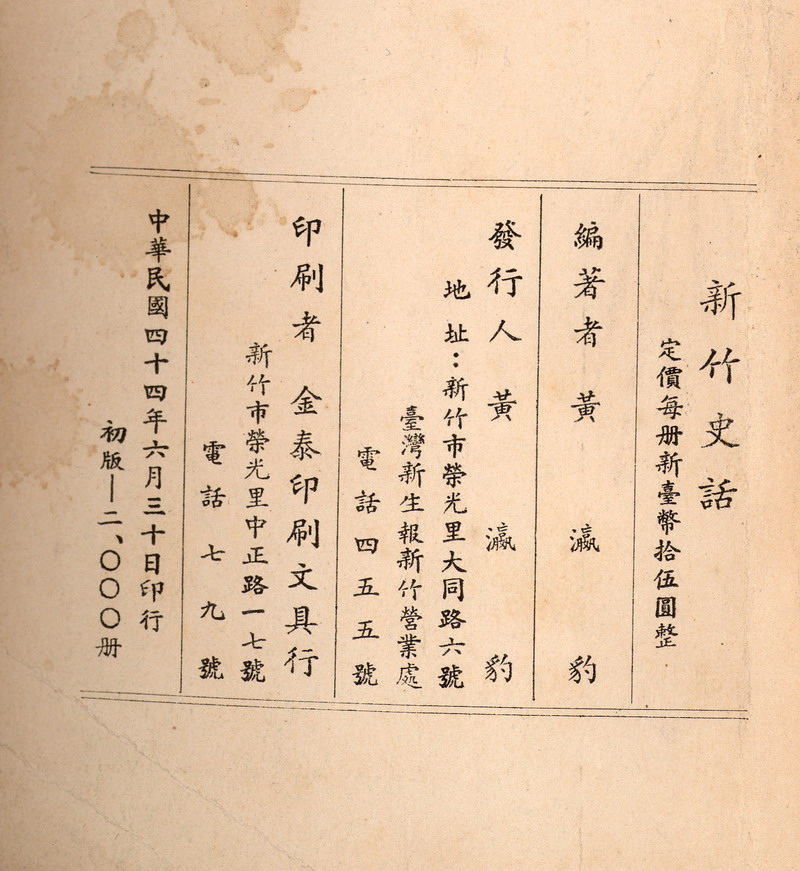 新竹史話
定價每册新臺幣拾伍圓整
編著者 黃瀛豹
發行人 黃瀛豹
地址：新竹市榮光里大同路六號
臺灣新生報新竹營業處
電話四五五號
印刷者 金泰印刷文具行
新竹市榮光里中正路一七號
電話七九號
中華民國四十四年六月三十日印行
初版—二、〇〇〇册